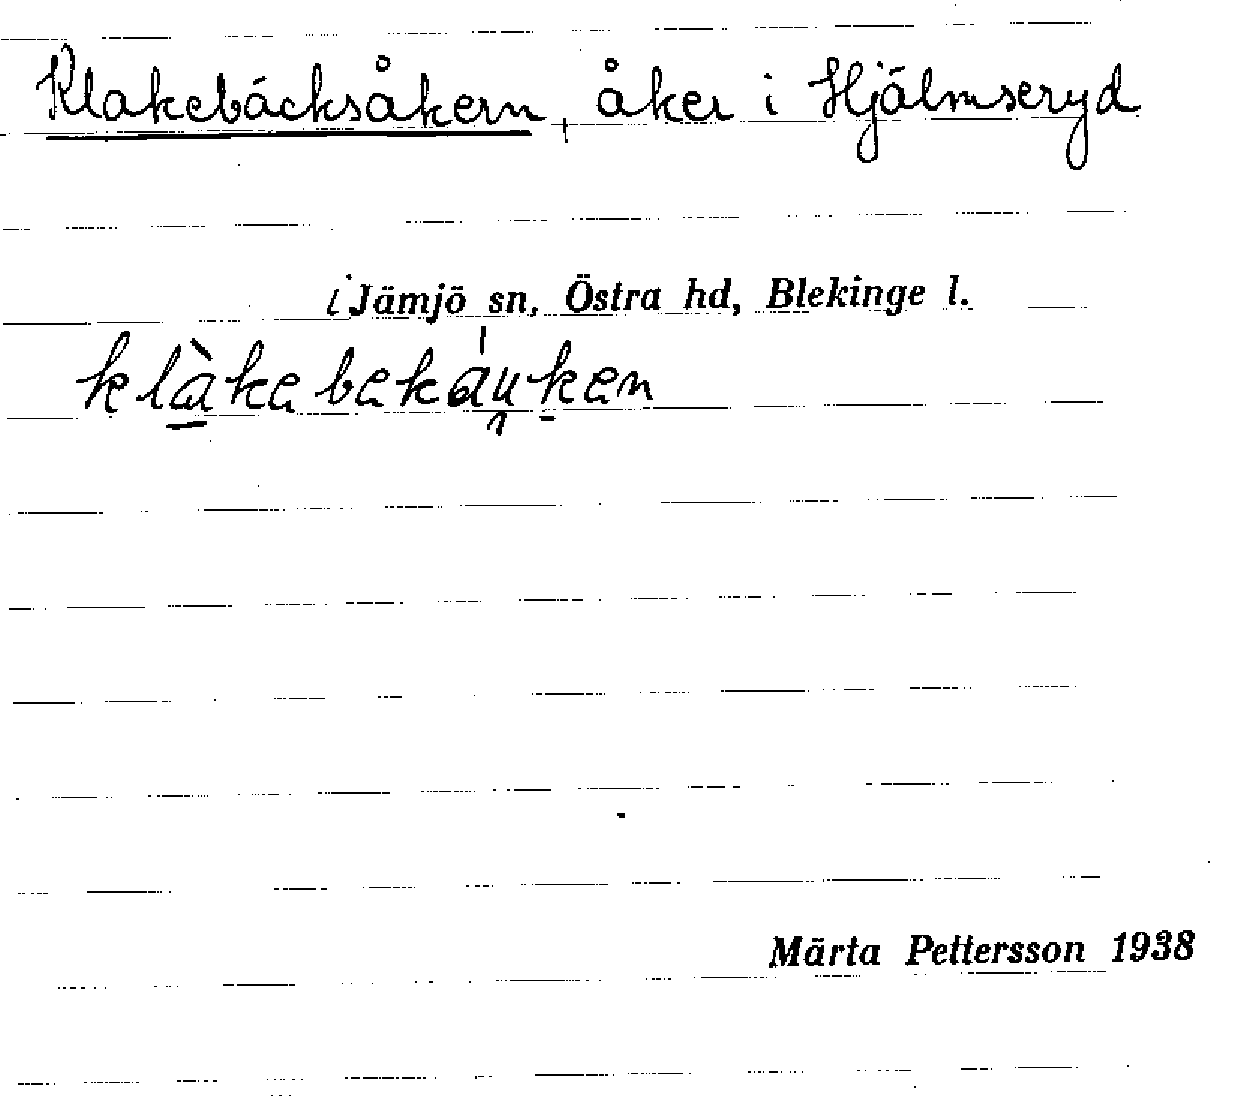 Klakebäcksåkern, åker i Hjälmseryd
i Jämjö sn, Östra hd, Blekinge l.
klàkebekáuken
Märta Pettersson 1938